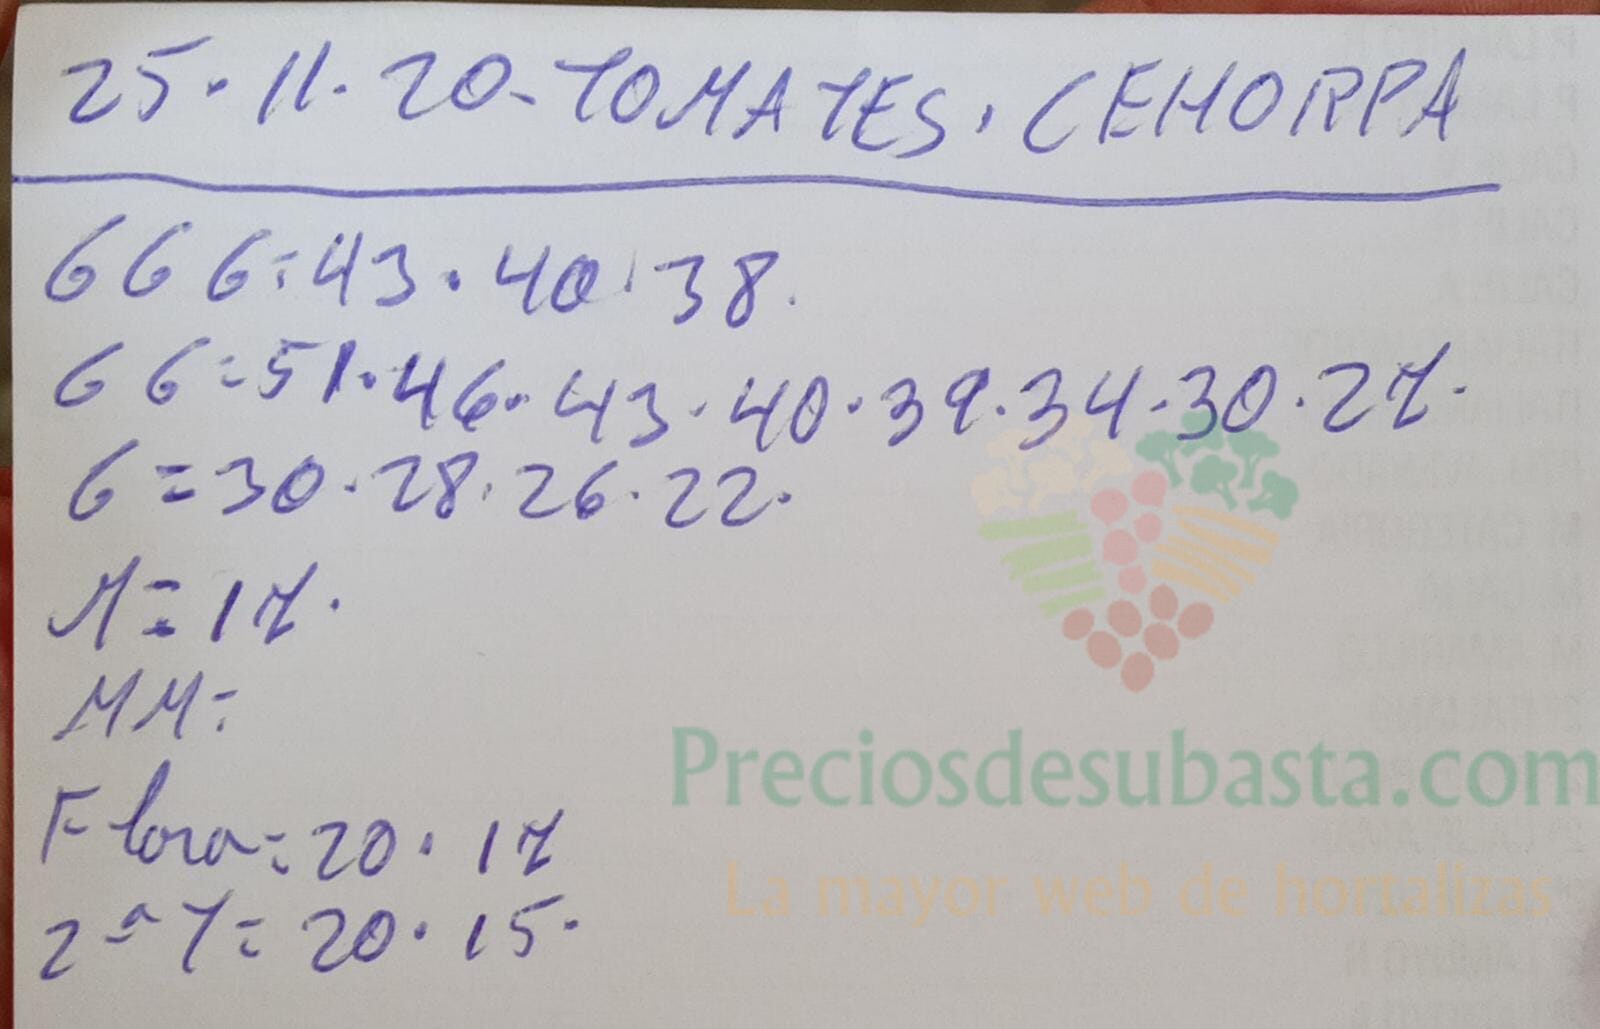 25.11.20-TOMATES. CEHORPA
GGG=43.40.38.
GG=51.46.43.40.39.34.30.27.
G=30.28.26.22.
M=17.
MM=
Flora=20.17
2ªT=20.15.
Preciosdesubasta.com
La mayor web de hortalizas